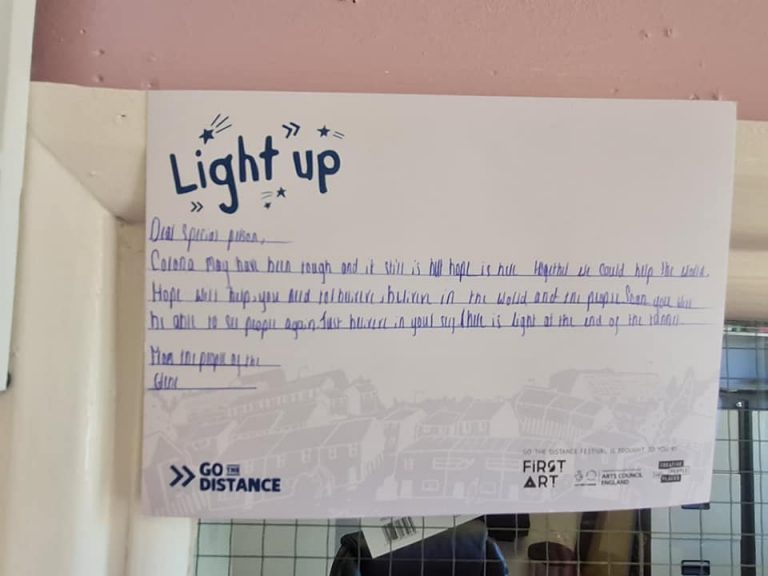 Light up
Dear special person,
Corona may have been rough and it still is but hope is here together we could help the world.
Hope will help, you need to believe, believe in the world and the people soon you will
be able to see people again. Just believe in your self there is light at the end of the tunnel
From the people of the
GO THE DISTANCE
GO THE DISTANCE FESTIVAL IS BROUGHT TO YOU BY
FIRST ART
ARTS COUNCIL ENGLAND
CREATIVE PEOPLE AND PLACES